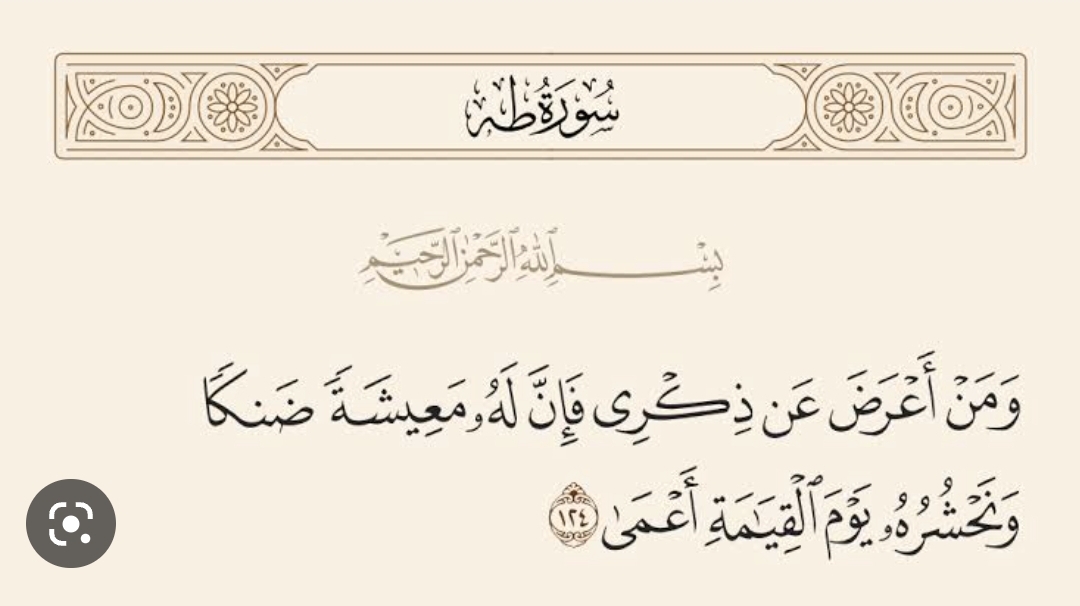 سُورَةُ طه
بِسْمِ ٱللَّهِ ٱلرَّحْمَٰنِ ٱلرَّحِيمِ
وَمَنْ أَعْرَضَ عَن ذِكْرِى فَإِنَّ لَهُۥ مَعِيشَةً ضَنكًا
وَنَحْشُرُهُۥ يَوْمَ ٱلْقِيَـٰمَةِ أَعْمَىٰ ١٢٤